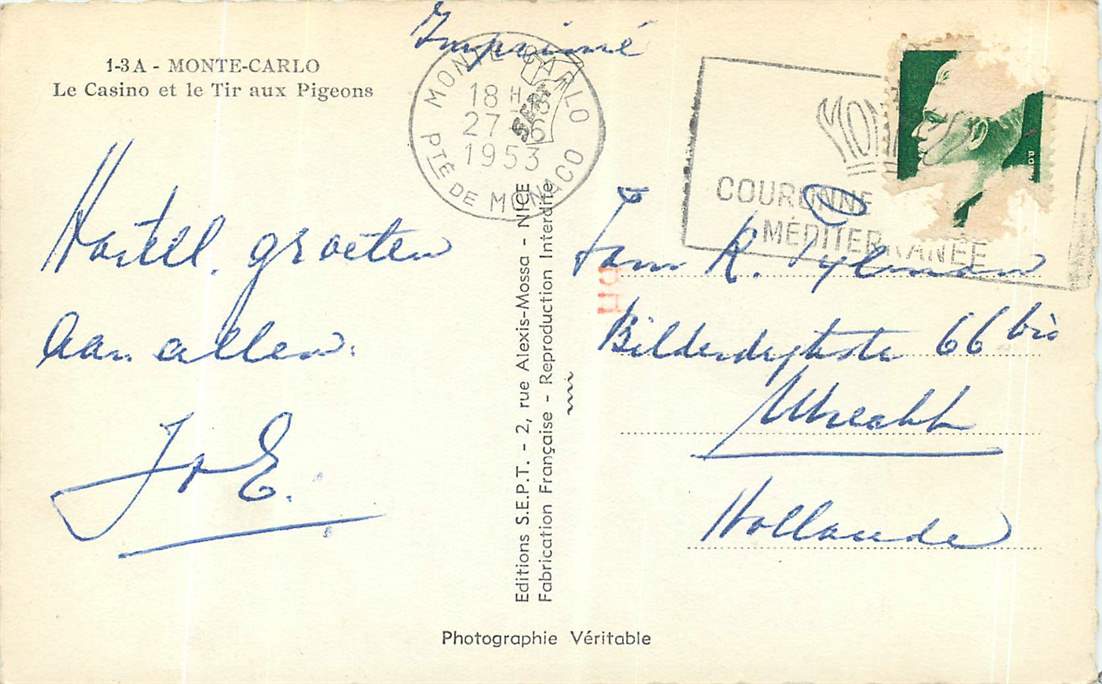 Imprimé
1-3A - MONTE-CARLO
Le Casino et le Tir aux Pigeons
MONTE-CARLO
18 H
27 - 6
1953
PTÉ DE MONACO
COURONNE
MÉDITERRANÉE
Hartel. groeten
aan allen.
J & E.
Fam R. Pylman
Bilderdijkstr 66 bis
Utrecht
Hollande
Editions S.E.P.T. - 2, rue Alexis-Mossa - NICE
Fabrication Française - Reproduction Interdite
Photographie Véritable